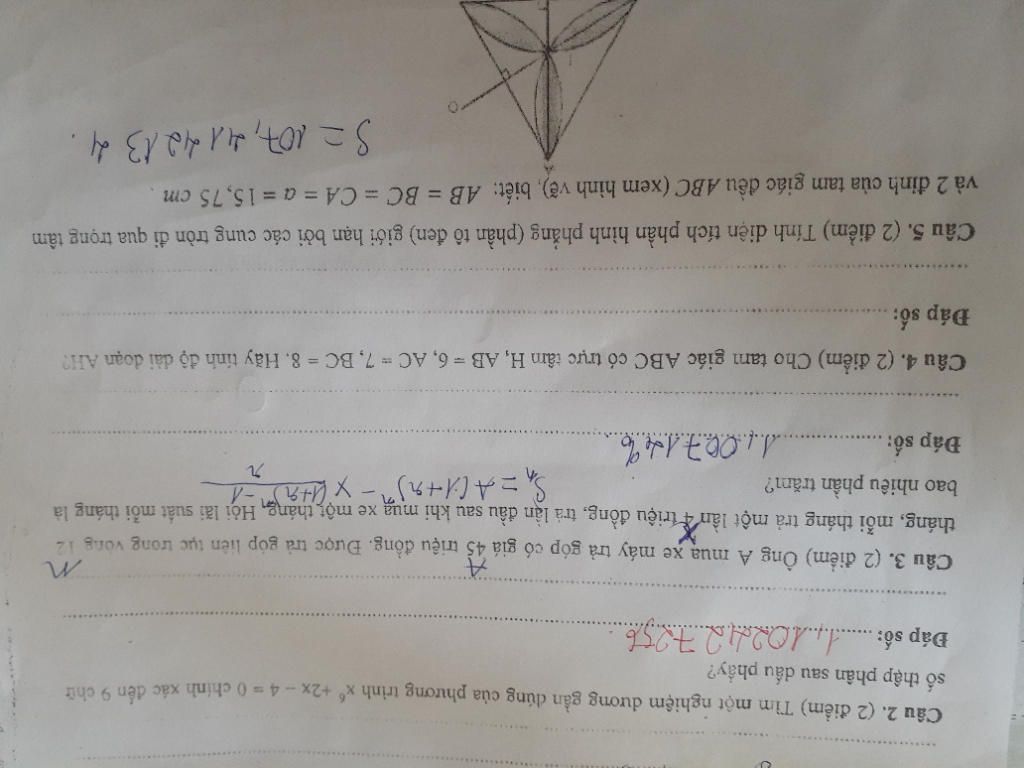 Câu 2. (2 điểm) Tìm một nghiệm dương gần đúng của phương trình x⁶ +2x – 4 = 0 chính xác đến 9 chữ
số thập phân sau dấu phẩy?
Đáp số: 1,102242 7256
Câu 3. (2 điểm) Ông A mua xe máy trả góp có giá 45 triệu đồng. Được trả góp liên tục trong vòng 12
A n
tháng, mỗi tháng trả một lần 4 triệu đồng, trả lần đầu sau khi mua xe một tháng. Hỏi lãi suất mỗi tháng là
X
bao nhiêu phần trăm?
Sₙ = A(1+r)ⁿ – X (1+r)ⁿ – 1 / r
Đáp số: 1,007124%
Câu 4. (2 điểm) Cho tam giác ABC có trực tâm H, AB = 6, AC = 7, BC = 8. Hãy tính độ dài đoạn AH?
Đáp số:
Câu 5. (2 điểm) Tính diện tích phần hình phẳng (phần tô đen) giới hạn bởi các cung tròn đi qua trọng tâm
và 2 đỉnh của tam giác đều ABC (xem hình vẽ), biết: AB = BC = CA = a = 15,75 cm.
S = 107,4142134.
A
O
I